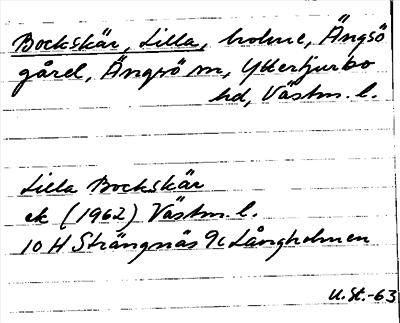 Bockskär, Lilla, holme, Ängsö
gård, Ängsö sn, Yttertjurbo
hd, Västm. l.
Lilla Bockskär
ek (1962) Västm. l.
10 H Strängnäs 9c Långholmen
U.St.-63